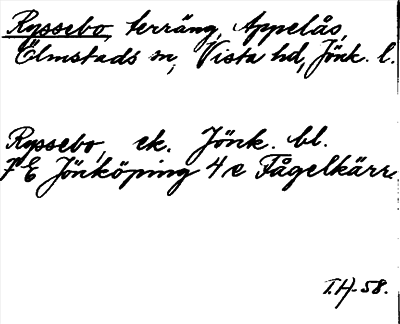 Ryssebo, terräng, Appelås,
Ölmstads sn, Vista hd, Jönk. l.
Ryssebo, ek. Jönk. bl.
7 E Jönköping 4 e Fågelkärr
T.H-58.